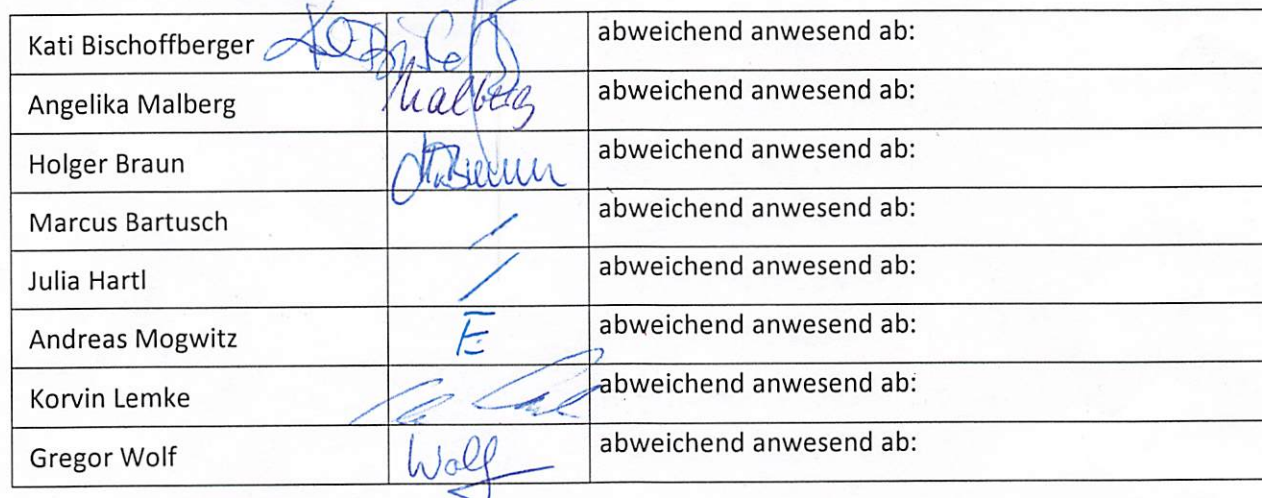 Kati Bischoffberger abweichend anwesend ab:
Angelika Malberg Malberg abweichend anwesend ab:
Holger Braun H.Braun abweichend anwesend ab:
Marcus Bartusch / abweichend anwesend ab:
Julia Hartl / abweichend anwesend ab:
Andreas Mogwitz E abweichend anwesend ab:
Korvin Lemke abweichend anwesend ab:
Gregor Wolf Wolf abweichend anwesend ab: